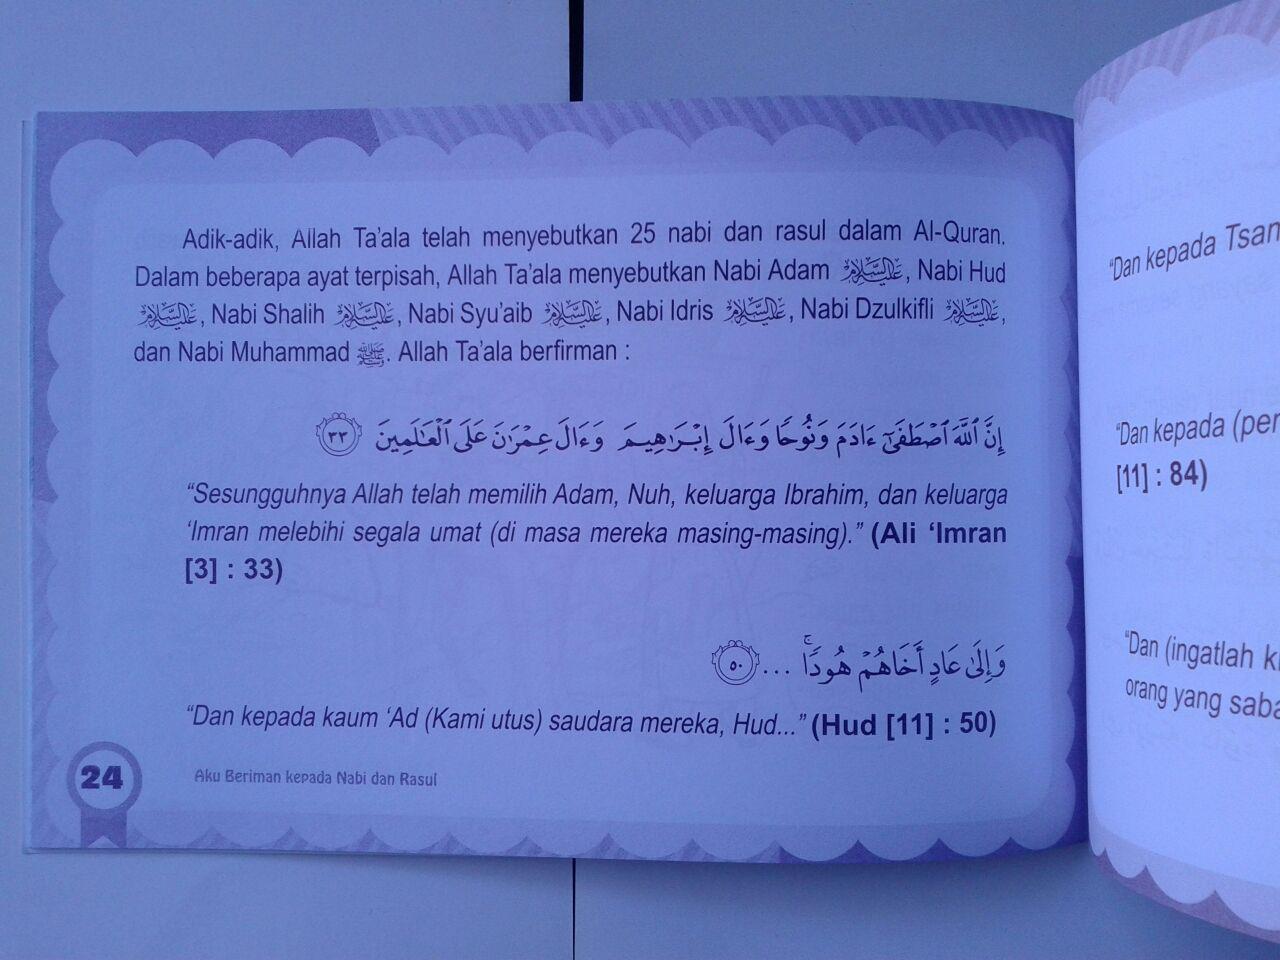 Adik-adik, Allah Ta'ala telah menyebutkan 25 nabi dan rasul dalam Al-Quran.
Dalam beberapa ayat terpisah, Allah Ta'ala menyebutkan Nabi Adam عليه السلام, Nabi Hud
عليه السلام, Nabi Shalih عليه السلام, Nabi Syu'aib عليه السلام, Nabi Idris عليه السلام, Nabi Dzulkifli عليه السلام,
dan Nabi Muhammad ﷺ. Allah Ta'ala berfirman :
إِنَّ ٱللَّهَ ٱصْطَفَىٰٓ ءَادَمَ وَنُوحًا وَءَالَ إِبْرَٰهِيمَ وَءَالَ عِمْرَٰنَ عَلَى ٱلْعَٰلَمِينَ ٣٣
“Sesungguhnya Allah telah memilih Adam, Nuh, keluarga Ibrahim, dan keluarga
‘Imran melebihi segala umat (di masa mereka masing-masing).” (Ali ‘Imran
[3] : 33)
وَإِلَىٰ عَادٍ أَخَاهُمْ هُودًا ۚ ... ٥٠
“Dan kepada kaum ‘Ad (Kami utus) saudara mereka, Hud...” (Hud [11] : 50)
24
Aku Beriman kepada Nabi dan Rasul
“Dan kepada Tsam
“Dan kepada (per
[11] : 84)
“Dan (ingatlah ki
orang yang saba